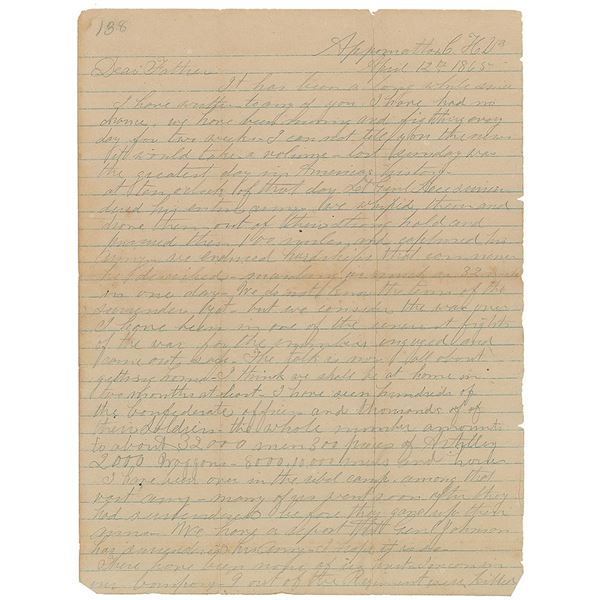 138
Appomattox C. H. Va
April 12th 1865
Dear Father
It has been a long while since
I have written to any of you I have had no
chance, we have been running and fighting every
day for two weeks. I can not tell you the news
it would take a volume - last Sunday was
the greatest day in American history.
at ten oclock of that day Genl Lee surren-
dered his entire army. We whiped them and
drove them out of their strong hold and
pursued them 100 miles and captured his
army. we endured hardships that can never
be described - marching as much as 32 miles
in one day. We do not know the terms of the
surrender yet. but we consider the war over
I have been in one of the fights
of the war for the numbers engaged and
come out safe. The talk is now all about
getting home. I think we shall be at home in
two months at least. I have seen hundreds of
the Confederate officers and thousands of of
their soldiers the whole number amounts
to about 32000 men 300 pieces of Artillery
2,000 Waggons - 8000, 10,000 mules and horses
I have been over in the rebel camp among that
vast army - many of us went soon after they
had surrendered before they gave up their
arms. We have a report that Genl Johnson
has surrendered his army I hope it is so
There have been in
our company 9 out of the Regiment were killed